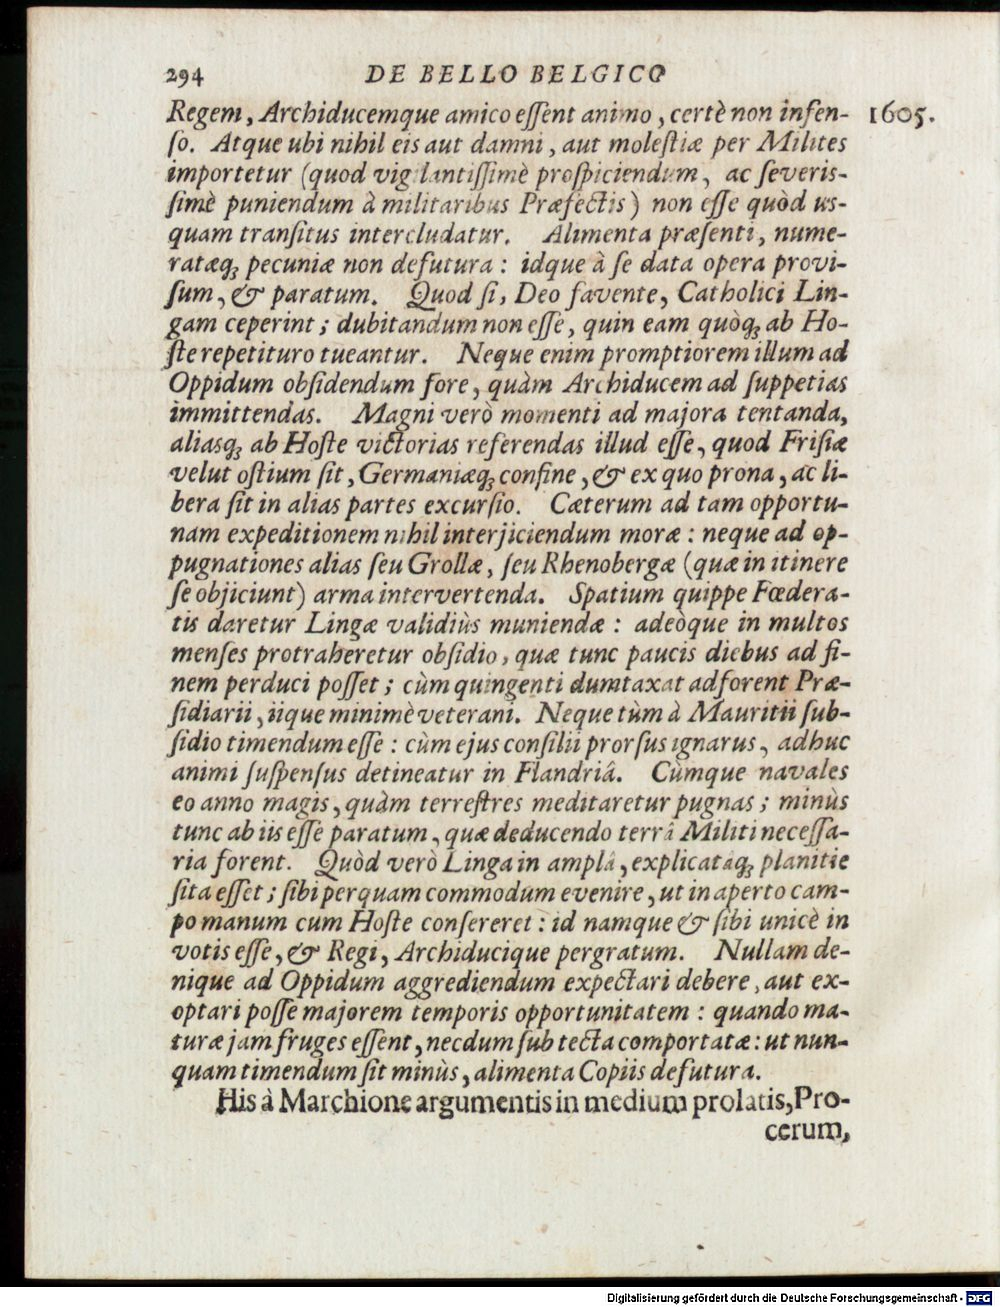 294 DE BELLO BELGICO
Regem, Archiducemque amico eſſent animo, certè non infen- 1605.
ſo. Atque ubi nihil eis aut damni, aut moleſtiæ per Milites
importetur (quod vigilantiſſimè proſpiciendum, ac ſeveriſ-
ſimè puniendum à militaribus Præfectis) non eſſe quòd us-
quam tranſitus intercludatur. Alimenta præſenti, nume-
ratæq́ꝫ pecuniæ non defutura: idque à ſe data opera provi-
ſum, & paratum. Quod ſi, Deo favente, Catholici Lin-
gam ceperint; dubitandum non eſſe, quin eam quòqꝫ ab Ho-
ſte repetituro tueantur. Neque enim promptiorem illum ad
Oppidum obſidendum fore, quàm Archiducem ad ſuppetias
immittendas. Magni verò momenti ad majora tentanda,
aliasqꝫ ab Hoſte victorias referendas illud eſſe, quod Friſiæ
velut oſtium ſit, Germaniæqꝫ confine, & ex quo prona, ac li-
bera ſit in alias partes excurſio. Cæterum ad tam opportu-
nam expeditionem nihil interjiciendum moræ: neque ad op-
pugnationes alias ſeu Grollæ, ſeu Rhenobergæ (quæ in itinere
ſe objiciunt) arma intervertenda. Spatium quippe Fœdera-
tis daretur Lingæ validiùs muniendæ: adeòque in multos
menſes protraheretur obſidio, quæ tunc paucis diebus ad fi-
nem perduci poſſet; cùm quingenti dumtaxat adforent Præ-
ſidiarii, iique minimè veterani. Neque tùm à Mauritii ſub-
ſidio timendum eſſe: cùm ejus conſilii prorſus ignarus, adhuc
animi ſuſpenſus detineatur in Flandriâ. Cùmque navales
eo anno magis, quàm terreſtres meditaretur pugnas; minùs
tunc ab iis eſſe paratum, quæ deducendo terrâ Militi neceſſa-
ria forent. Quòd verò Linga in amplâ, explicatáqꝫ planitie
ſita eſſet; ſibi perquam commodum evenire, ut in aperto cam-
po manum cum Hoſte conſereret: id namque & ſibi unicè in
votis eſſe, & Regi, Archiducique pergratum. Nullam de-
nique ad Oppidum aggrediendum expectari debere, aut ex-
optari poſſe majorem temporis opportunitatem: quando ma-
turæ jam fruges eſſent, necdum ſub tecta comportatæ: ut nun-
quam timendum ſit minùs, alimenta Copiis defutura.
His à Marchione argumentis in medium prolatis, Pro-
cerum,
Digitalisierung gefördert durch die Deutsche Forschungsgemeinschaft - DFG